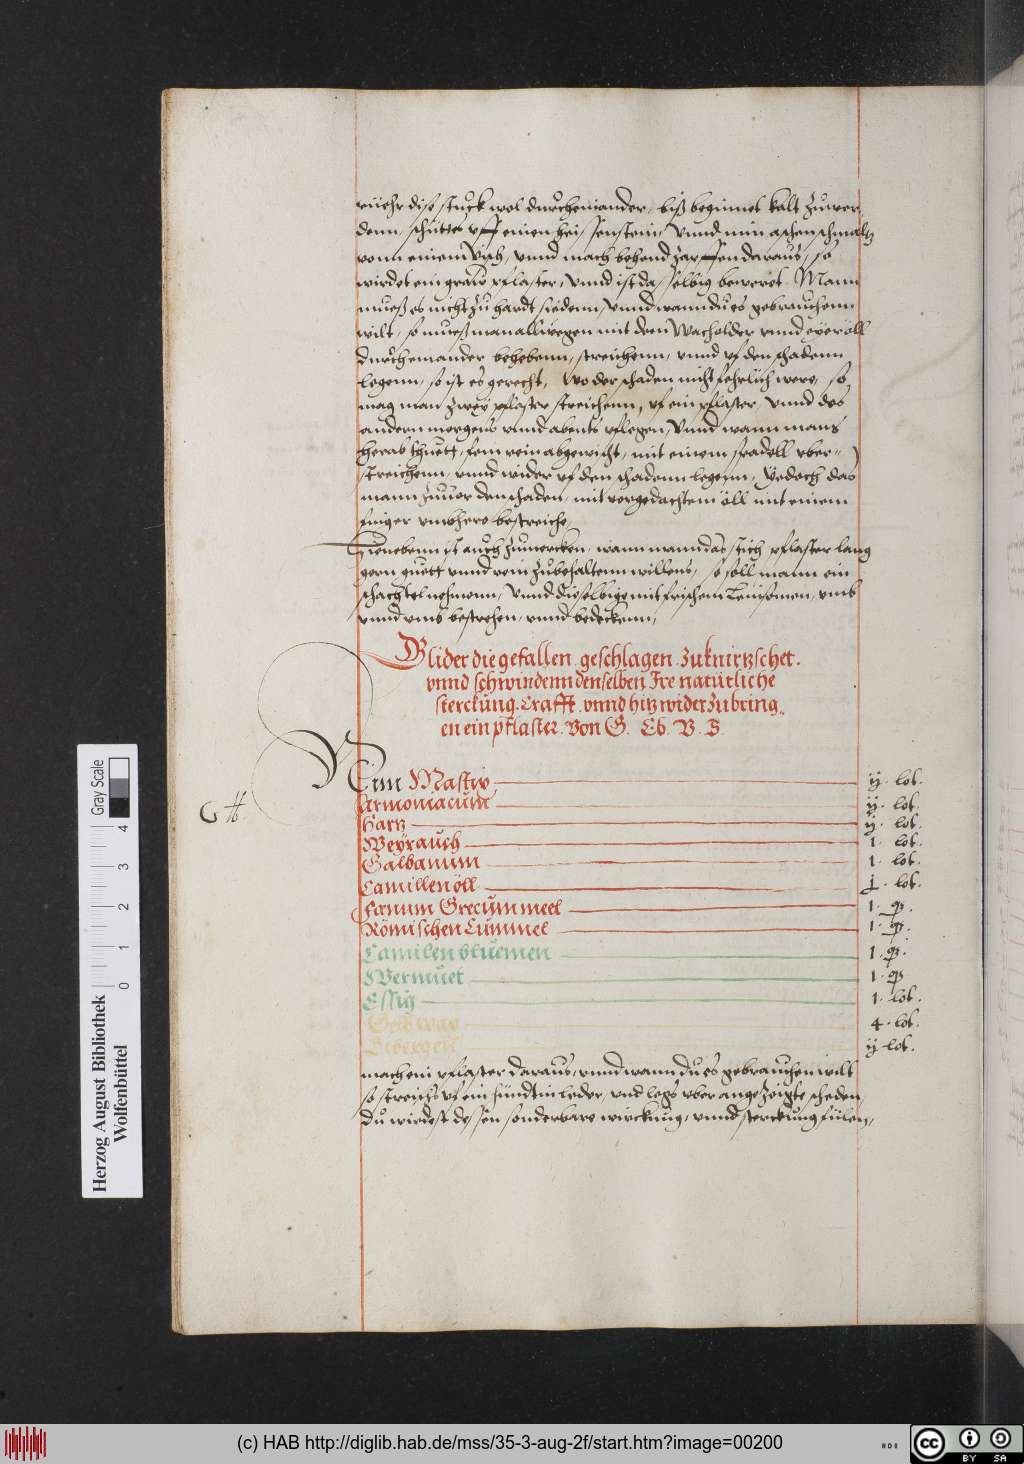 rüehr dise stuckh wol durcheinander, biß beginnet kalt zuwer
denn, schüttes vff einen heissenstein, Vnnd nim aschenschmaltz
vonn einem Visch, vnnd mach behend zapffen daraus, so
wirdet ein graw pflaster, Vnnd ist da selbig beweret. Mann
mueß es nicht zu hardt siedenn, Vnnd wann du es gebrauchenn
wilt, so mueß man allwegen mit dem Wacholder vnnd eyeröll
durcheinander behebenn, streichenn, vnnd vf den schadenn
legenn, so ist es gerecht, Wo der schaden nicht fehrlich were, so
mag man zwey pflaster streichenn, vf ein pflaster, Vnnd des
andern morgens vnnd abents pflegen, Vnnd wann mans
herab thuett, fein rein abgewischt, mit einem spadell vber-
streichenn, vnnd wider vf den schadenn legenn, Yedoch das
mann zuuor den schaden, mit vorgedachtem öll mit einem
finger vmbhero bestreiche,
Hienebenn ist auch zumercken, wann mann das stich pflaster lang
gern guett vnnd rein zubehaltenn willens, so soll mann ein
schachtel nehmenn, Vnnd dieselbige mit frischem Leinsomen, vmb
vnnd vmb bestrehen, vnnd bedeckenn,
Glider die gefallen, geschlagen, zuknirzschet,
vnnd schwindenn denselben Ire natürliche
sterckung, Crafft, vnnd hitz wider zubring,,
en ein pflaster. Von G. Eb. V. S.
Nim Mastix ij. lot.
Armoniacum ij. lot.
Hartz ij. lot.
Weyrauch 1. lot.
Galbanum 1. lot.
Camillenöll j. lot.
Fœnum Grecum meel 1. q.
Römischen Cümmel 1. q.
Camilen bluemen 1. q.
Wermuet 1. q.
Essig 1. lot.
Geel wax 4. lot.
Bibergeil ij lot.
mach ein pflaster daraus, vnnd wann du es gebrauchen wilt
so streichs vf ein hündtin leder, vnd legs vber angezeigte scheden,
du wirdest dessen sonderbare würckung, vnnd sterckung fülen,
Herzog August Bibliothek
Wolfenbüttel
Gray Scale
0 1 2 3 4
(c) HAB http://diglib.hab.de/mss/35-3-aug-2f/start.htm?image=00200
cc BY SA